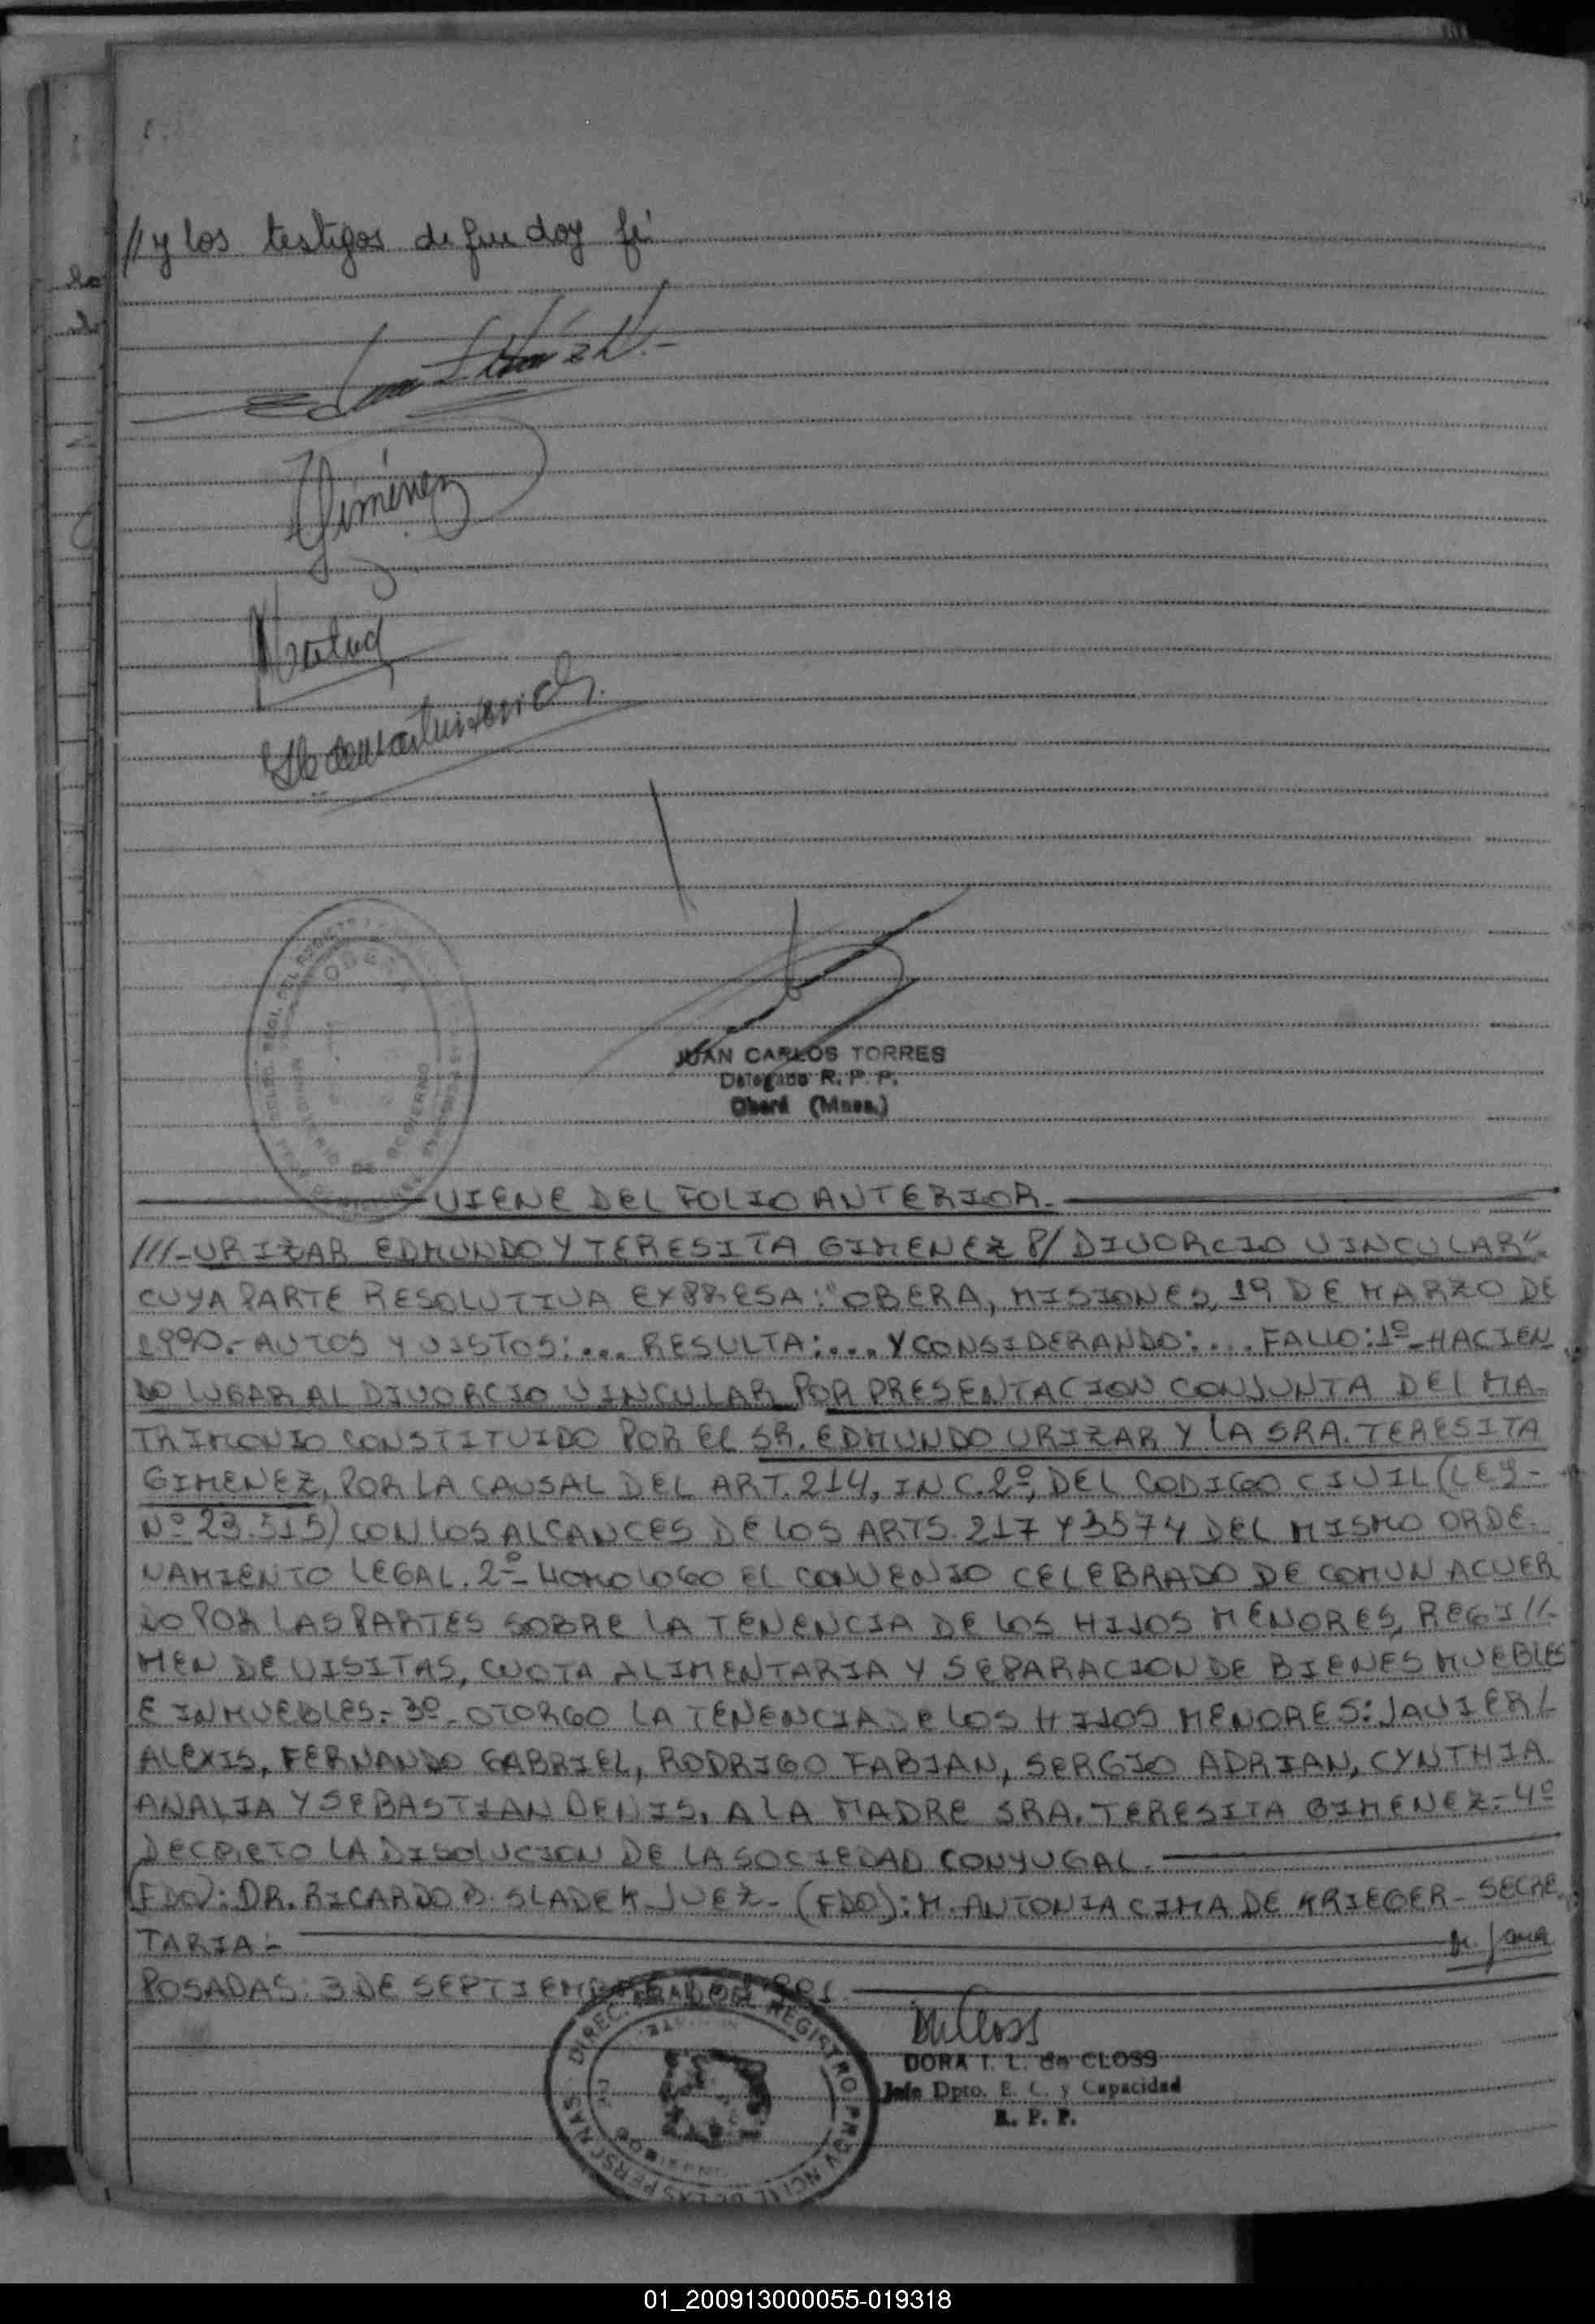 //y los testigos de que doy fé
Giménez
JUAN CARLOS TORRES
Delegado R. P. P.
Oberá (Mnes.)
VIENE DEL FOLIO ANTERIOR.-
///-URIZAR EDMUNDO Y TERESITA GIMENEZ P/ DIVORCIO VINCULAR".
CUYA PARTE RESOLUTIVA EXPRESA: "OBERA, MISIONES, 19 DE MARZO DE
1990.- AUTOS Y VISTOS:... RESULTA:... Y CONSIDERANDO:... FALLO: 1º- HACIEN
DO LUGAR AL DIVORCIO VINCULAR POR PRESENTACION CONJUNTA DEL MA-
TRIMONIO CONSTITUIDO POR EL SR. EDMUNDO URIZAR Y LA SRA. TERESITA
GIMENEZ, POR LA CAUSAL DEL ART. 214, INC. 2º, DEL CODIGO CIVIL (LEY-
Nº 23.515) CON LOS ALCANCES DE LOS ARTS. 217 Y 3574 DEL MISMO ORDE-
NAMIENTO LEGAL. 2º- HOMOLOGO EL CONVENIO CELEBRADO DE COMUN ACUER
DO POR LAS PARTES SOBRE LA TENENCIA DE LOS HIJOS MENORES, REGI//-
MEN DE VISITAS, CUOTA ALIMENTARIA Y SEPARACION DE BIENES MUEBLES
E INMUEBLES.- 3º- OTORGO LA TENENCIA DE LOS HIJOS MENORES: JAVIER/-
ALEXIS, FERNANDO GABRIEL, RODRIGO FABIAN, SERGIO ADRIAN, CYNTHIA
ANALIA Y SEBASTIAN DENIS, A LA MADRE SRA. TERESITA GIMENEZ.- 4º
DECRETO LA DISOLUCION DE LA SOCIEDAD CONYUGAL.-
(FDO): DR. RICARDO D. SLADEK JUEZ.- (FDO): M. ANTONIA CIMA DE KRIEGER - SECRE
TARIA.-
POSADAS: 3 DE SEPTIEMBRE
DIREC. GRAL. DEL REGISTRO PROVINCIAL DE LAS PERSONAS
DORA I. L. de CLOSS
Jefe Dpto. E. C. y Capacidad
R. P. P.
01_200913000055-019318